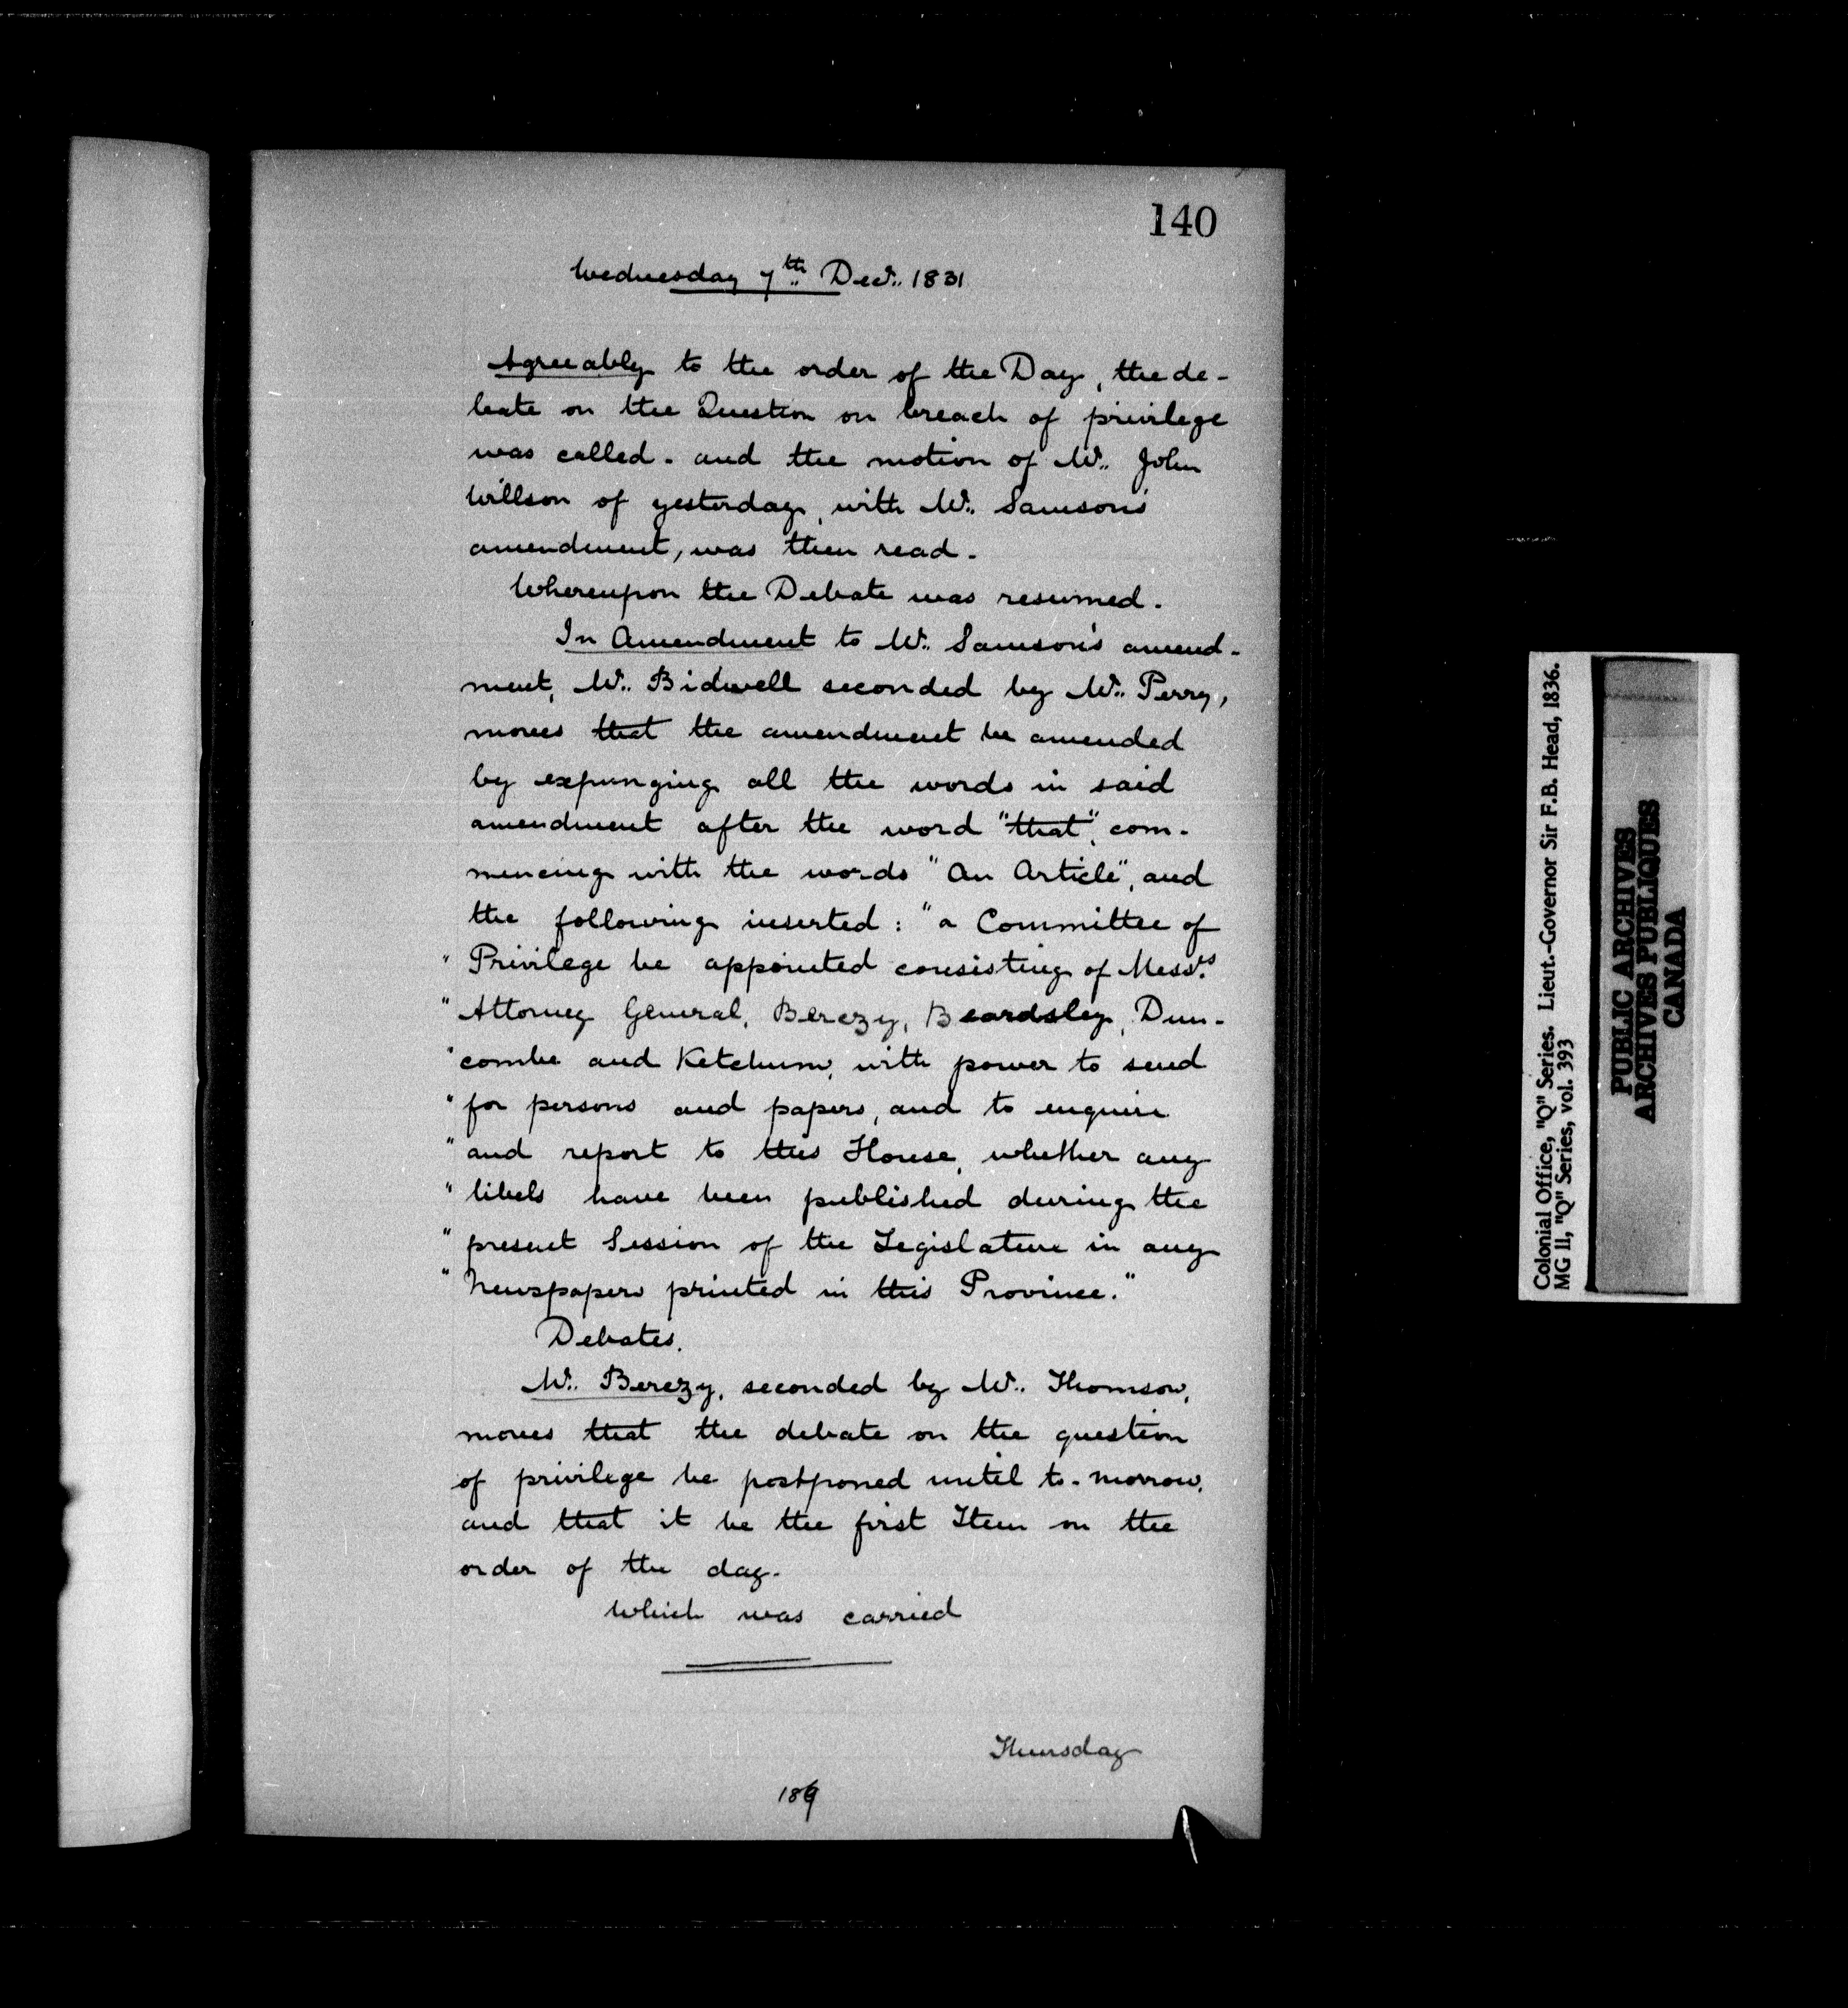 140
Wednesday 7th Decr. 1831
Agreeably to the order of the Day, the de-
bate on the Question on breach of privilege
was called. and the motion of Mr. John
Willson of yesterday, with Mr. Samson's
amendment, was then read.
Whereupon the Debate was resumed.
In Amendment to Mr. Samson's amend-
ment, Mr. Bidwell seconded by Mr. Perry,
moves that the amendment be amended
by expunging all the words in said
amendment after the word "that", com-
mencing with the words "An Article", and
the following inserted: "a Committee of
" Privilege be appointed consisting of Messrs
" Attorney General, Berczy, Beardsley, Dun-
" combe and Ketchum, with power to send
" for persons and papers, and to enquire
" and report to this House, whether any
" libels have been published during the
" present Session of the Legislature in any
" Newspapers printed in this Province."
Debates.
Mr. Berczy, seconded by Mr. Thomson,
moves that the debate on the question
of privilege be postponed until to-morrow,
and that it be the first Item on the
order of the day.
Which was carried
Thursday
189
Colonial Office, "Q" Series. Lieut.-Governor Sir F.B. Head, 1836.
MG 11, "Q" Series, vol. 393
PUBLIC ARCHIVES
ARCHIVES PUBLIQUES
CANADA